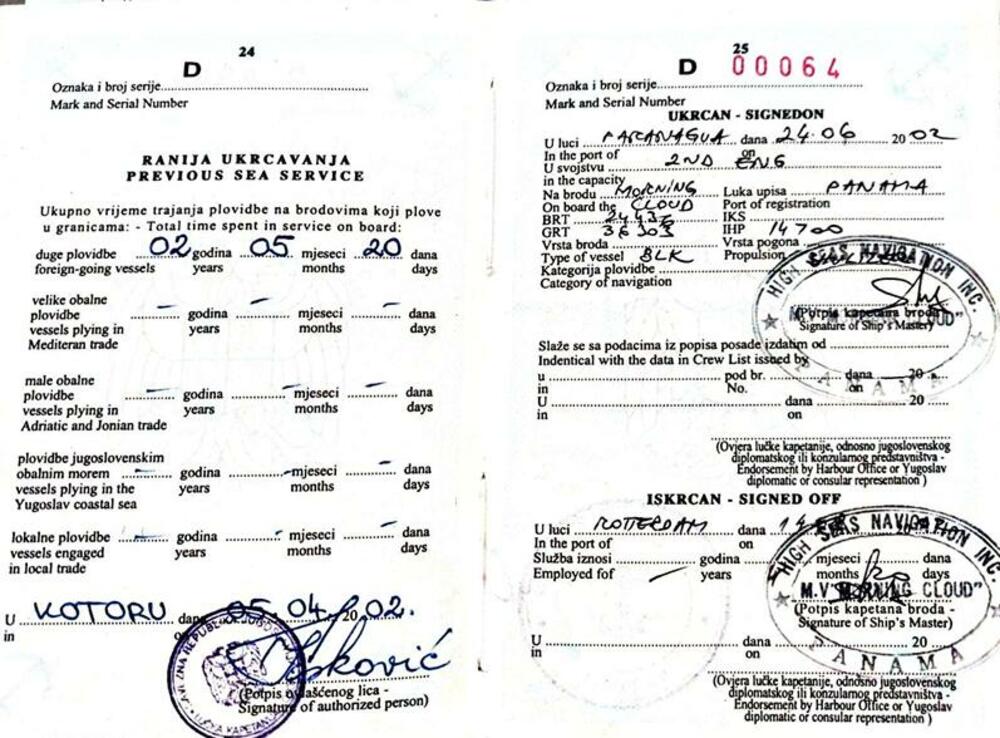 24
D
Oznaka i broj serije
Mark and Serial Number
RANIJA UKRCAVANJA
PREVIOUS SEA SERVICE
Ukupno vrijeme trajanja plovidbe na brodovima koji plove
u granicama: - Total time spent in service on board:
duge plovidbe 02 godina 05 mjeseci 20 dana
foreign-going vessels years months days
velike obalne
plovidbe - godina - mjeseci - dana
vessels plying in years months days
Mediteran trade
male obalne
plovidbe - godina - mjeseci - dana
vessels plying in years months days
Adriatic and Jonian trade
plovidbe jugoslovenskim
obalnim morem - godina - mjeseci - dana
vessels plying in the years months days
Yugoslav coastal sea
lokalne plovidbe - godina - mjeseci - dana
vessels engaged years months days
in local trade
U KOTORU dana 05. 04. 20 02.
in on
(Potpis ovlašćenog lica -
Signature of authorized person)
25
D 00064
Oznaka i broj serije
Mark and Serial Number
UKRCAN - SIGNEDON
U luci PARANAGUA dana 24.06 20 02
In the port of on
U svojstvu 2ND ENG
in the capacity
Na brodu MORNING Luka upisa PANAMA
On board the CLOUD Port of registration
BRT IKS
GRT 36303 IHP 14700
Vrsta broda Vrsta pogona
Type of vessel BLK Propulsion
Kategorija plovidbe
Category of navigation
HIGH SEAS NAVIGATION INC.
PANAMA
(Potpis kapetana broda
Signature of Ship's Master)
Slaže se sa podacima iz popisa posade izdatim od
Indentical with the data in Crew List issued by
u pod br. dana 20
in No. on
U dana 20
in on
(Ovjera lučke kapetanije, odnosno jugoslovenskog
diplomatskog ili konzularnog predstavništva -
Endorsement by Harbour Office or Yugoslav
diplomatic or consular representation )
ISKRCAN - SIGNED OFF
U luci ROTTERDAM dana
In the port of on
Služba iznosi godina mjeseci dana
Employed fof years months days
HIGH SEAS NAVIGATION INC.
M.V "MORNING CLOUD"
PANAMA
(Potpis kapetana broda -
Signature of Ship's Master)
U dana 20
in on
(Ovjera lučke kapetanije, odnosno jugoslovenskog
diplomatskog ili konzularnog predstavništva -
Endorsement by Harbour Office or Yugoslav
diplomatic or consular representation )